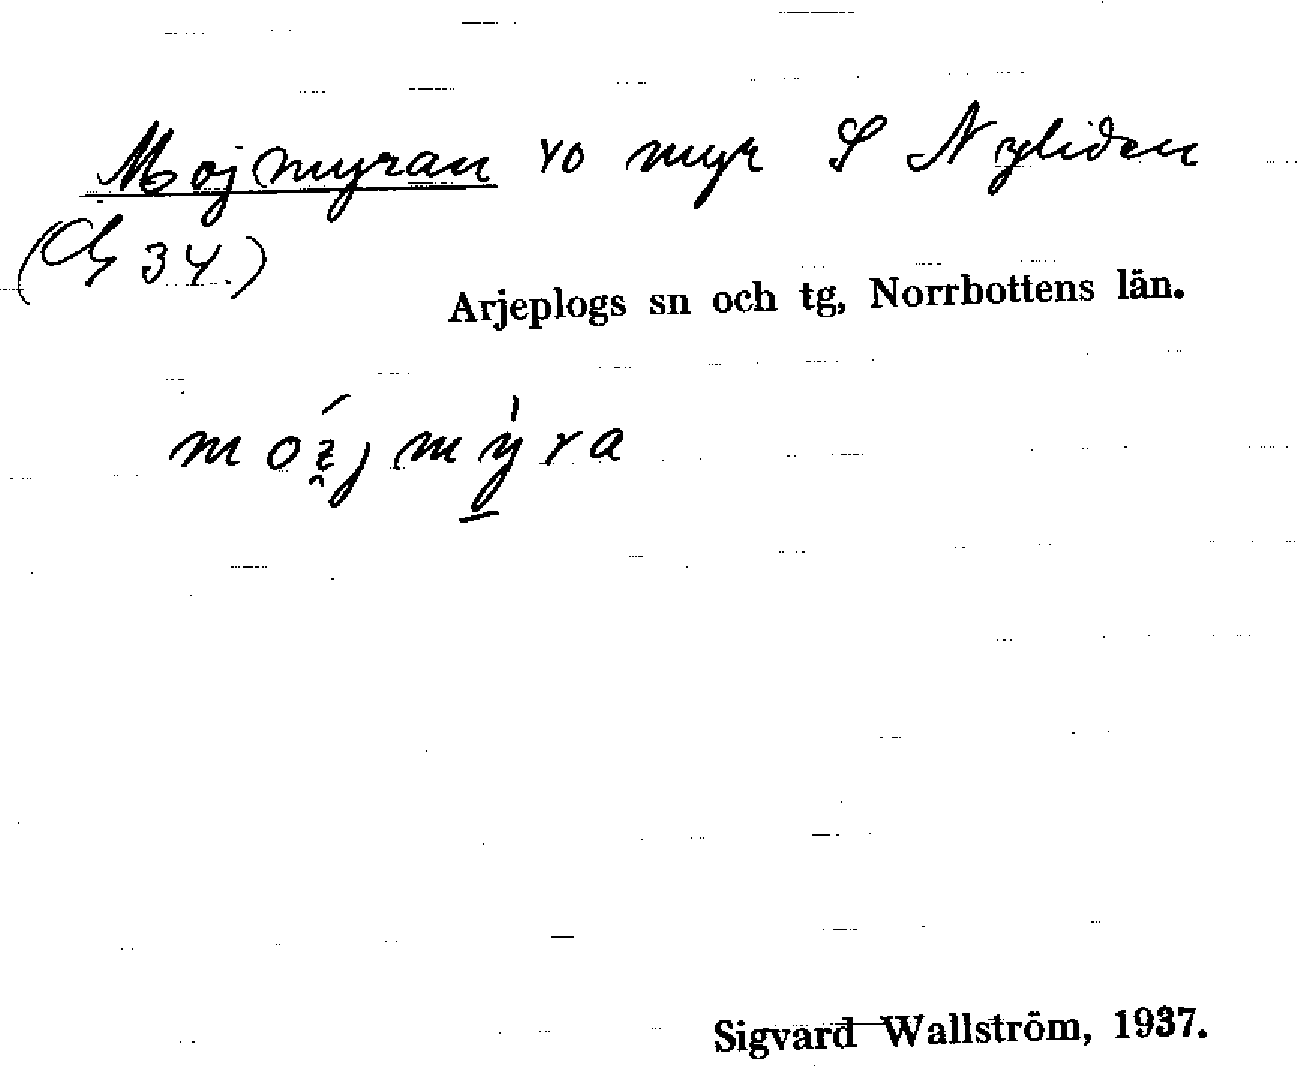 Mojmyran ro myr S Nyliden
(Ch 34.)
Arjeplogs sn och tg, Norrbottens län.
Sigvard Wallström, 1937.